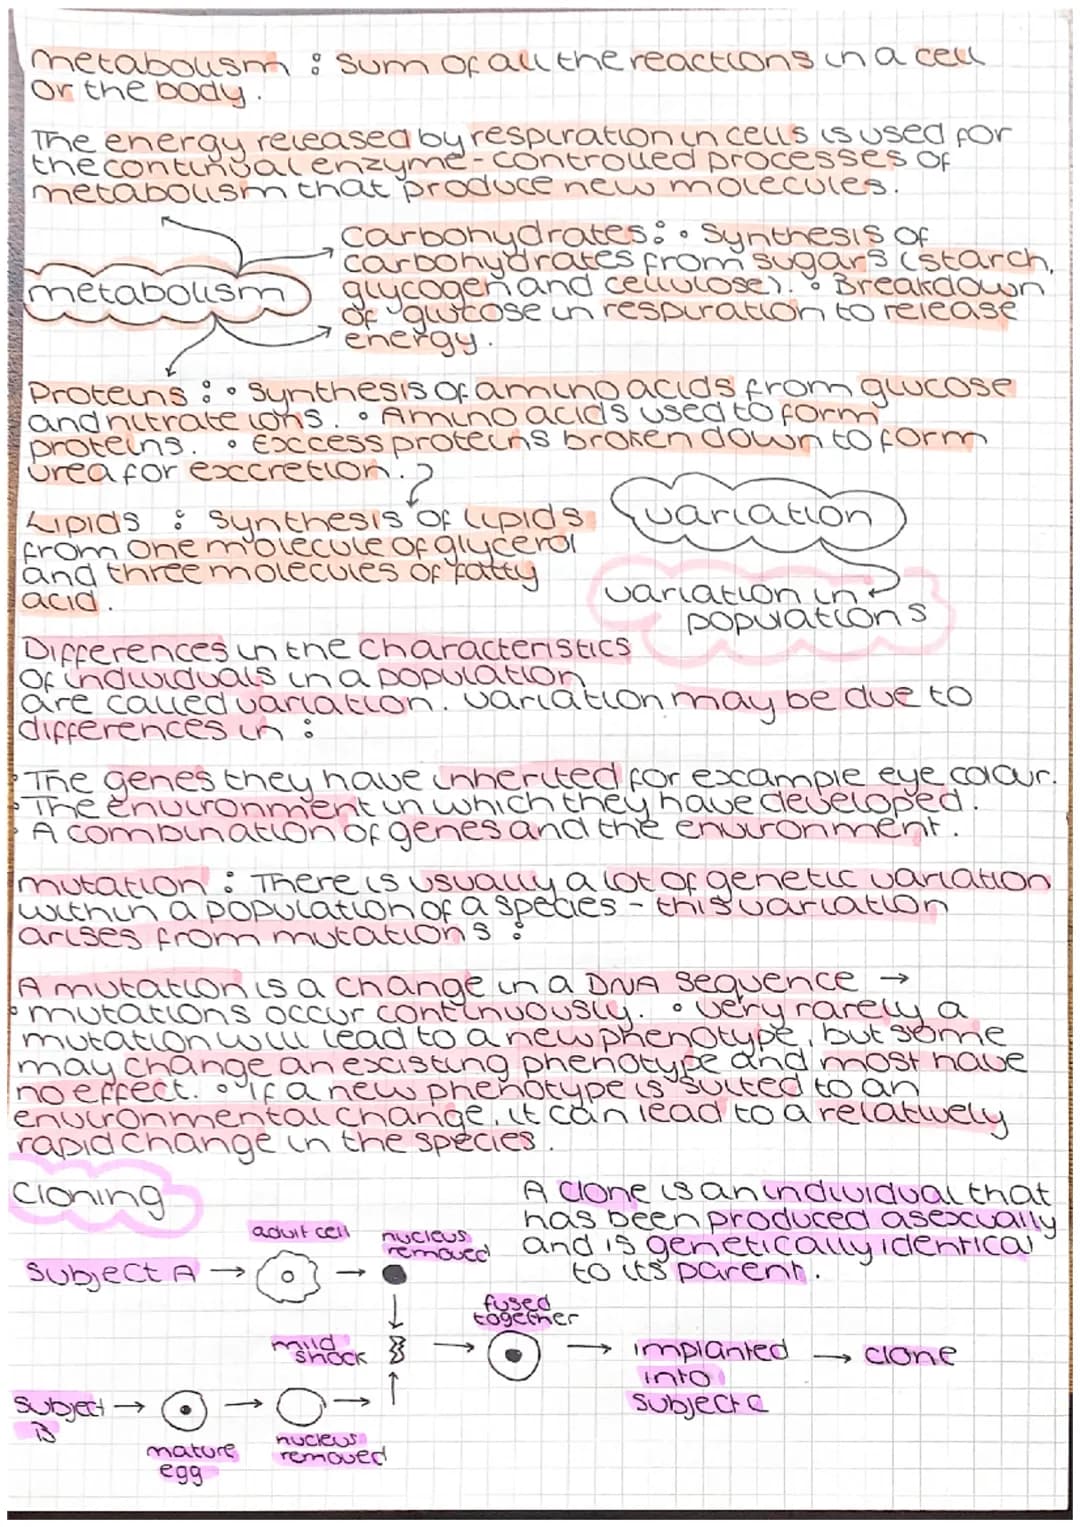 metabolism : sum of all the reactions in a cell
or the body.
The energy released by respiration in cells is used for
the continual enzyme-controlled processes of
metabolism that produce new molecules.
metabolism
Carbohydrates: • Synthesis of
carbohydrates from sugars (starch,
glycogen and cellulose). • Breakdown
of glucose in respiration to release
energy.
Proteins : • Synthesis of amino acids from glucose
and nitrate ions. • Amino acids used to form
proteins. • Excess proteins broken down to form
urea for excretion.
Lipids : Synthesis of lipids
from one molecule of glycerol
and three molecules of fatty
acid.
variation
variation in
populations
Differences in the characteristics
of individuals in a population
are called variation. variation may be due to
differences in :
• The genes they have inherited for example eye colour.
• The environment in which they have developed.
• A combination of genes and the environment.
mutation : There is usually a lot of genetic variation
within a population of a species - this variation
arises from mutations :
A mutation is a change in a DNA sequence →
• mutations occur continuously. • very rarely a
mutation will lead to a new phenotype, but some
may change an existing phenotype and most have
no effect. • If a new phenotype is suited to an
environmental change, it can lead to a relatively
rapid change in the species.
Cloning
A clone is an individual that
has been produced asexually
and is genetically identical
to its parent.
adult cell
nucleus
removed
Subject A →
fused
together
mild
shock
implanted
into
Subject C
→ clone
Subject
B
mature
egg
nucleus
removed